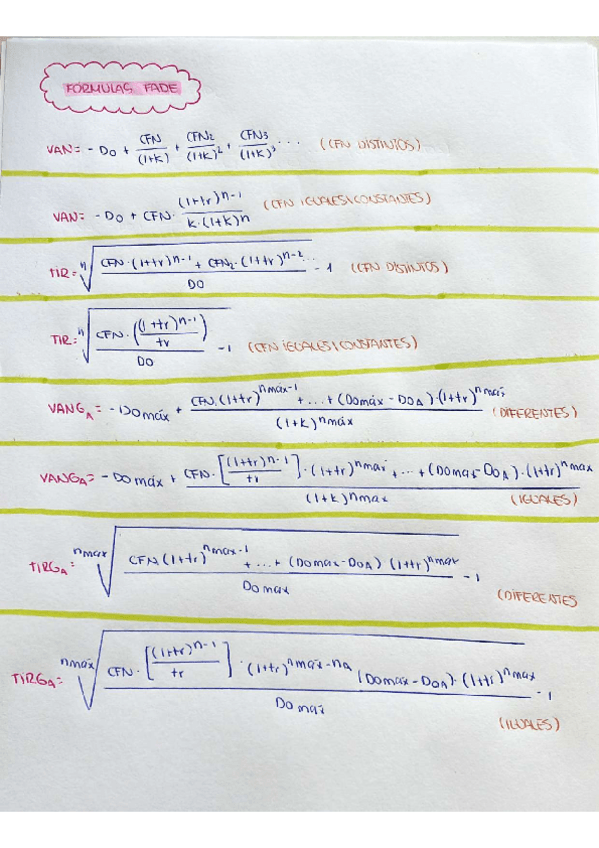 FORMULAS FADE
VAN = - Do + CFN/(1+K) + CFN2/(1+K)^2 + CFN3/(1+K)^3 ... (CFN DISTINTOS)
VAN = - Do + CFN · (1+tr)^n-1 / K·(1+K)^n (CFN IGUALES\CONSTANTES)
TIR = n√(CFN·(1+tr)^n-1 + CFN2·(1+tr)^n-2... / DO) - 1 (CFN DISTINTOS)
TIR = n√(CFN·((1+tr)^n-1 / tr) / DO) - 1 (CFN IGUALES\CONSTANTES)
VANGA = - Do máx + CFN·(1+tr)^nmax-1 + ... + (Domáx - DoA)·(1+tr)^nmáx / (1+K)^nmáx (DIFERENTES)
VANGA = - Do máx + CFN·[(1+tr)^n-1 / tr]·(1+tr)^nmax + ... + (Domax-DoA)·(1+tr)^nmax / (1+K)^nmax (IGUALES)
TIRGA = nmax√(CFN·(1+tr)^nmax-1 + ... + (Domax-DoA)·(1+tr)^nmax / Do max) - 1 (DIFERENTES
TIRGA = nmáx√(CFN·[(1+tr)^n-1 / tr]·(1+tr)^nmax-nA (Domáx-DoA)·(1+tr)^nmax / Do máx) - 1 (IGUALES)